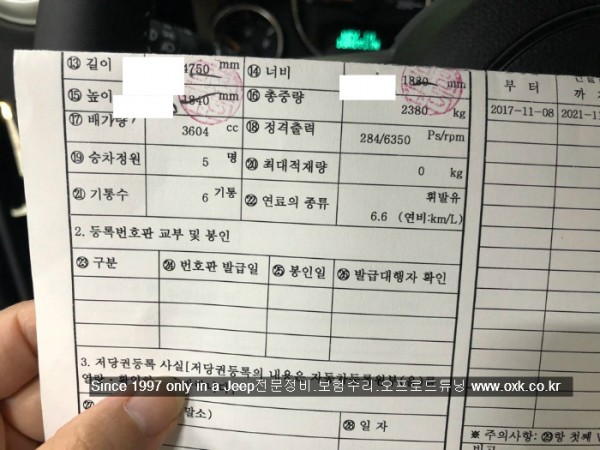 ⑬ 길이 4750 mm ⑭ 너비 1880 mm
⑮ 높이 1840 mm ⑯ 총중량 2380 kg
⑰ 배기량 3604 cc ⑱ 정격출력 284/6350 Ps/rpm
⑲ 승차정원 5 명 ⑳ 최대적재량 0 kg
㉑ 기통수 6 기통 ㉒ 연료의 종류 휘발유
6.6 (연비:km/L)
부 터
2017-11-08 2021-11
2. 등록번호판 교부 및 봉인
㉓ 구분 ㉔ 번호판 발급일 ㉕ 봉인일 ㉖ 발급대행자 확인
3. 저당권등록 사실[저당권등록의 내용은 자동차등록원부(을)를
Since 1997 only in a Jeep전문정비.보험수리.오프로드튜닝 www.oxk.co.kr
말소) ㉘ 일 자
※ 주의사항: ㉙항 첫째
비고